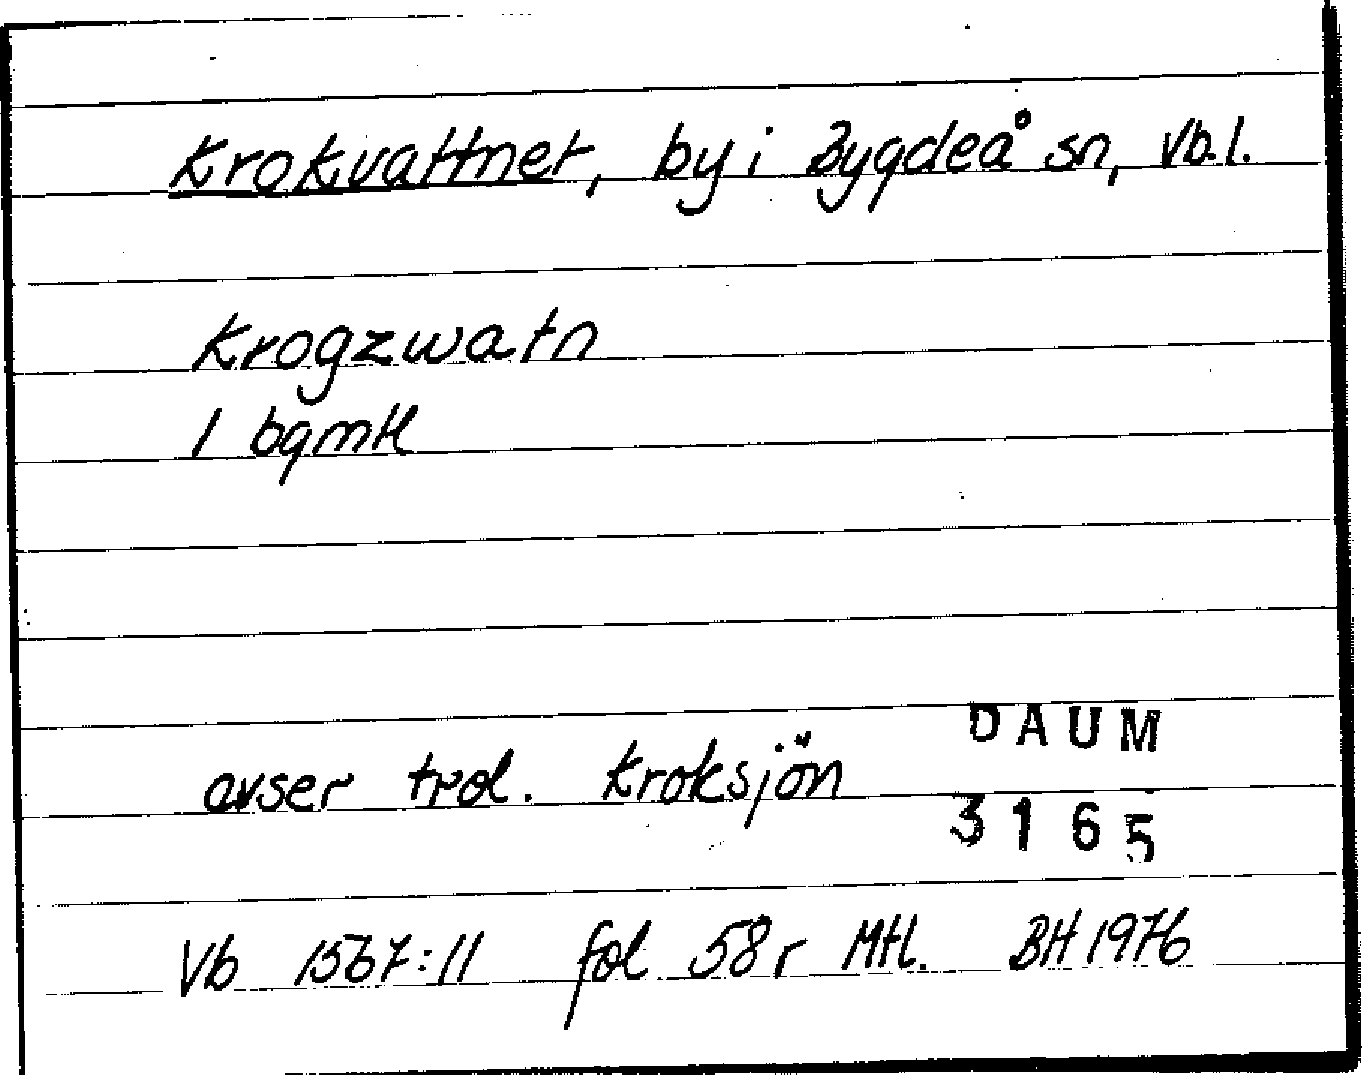 Krokvattnet, by i Bygdeå sn, Vb.l.
Krogzwatn
1 bgmtl
avser trol. Kroksjön
DAUM
3165
Vb 1567:11 fol 58r Mtl. BH 1976